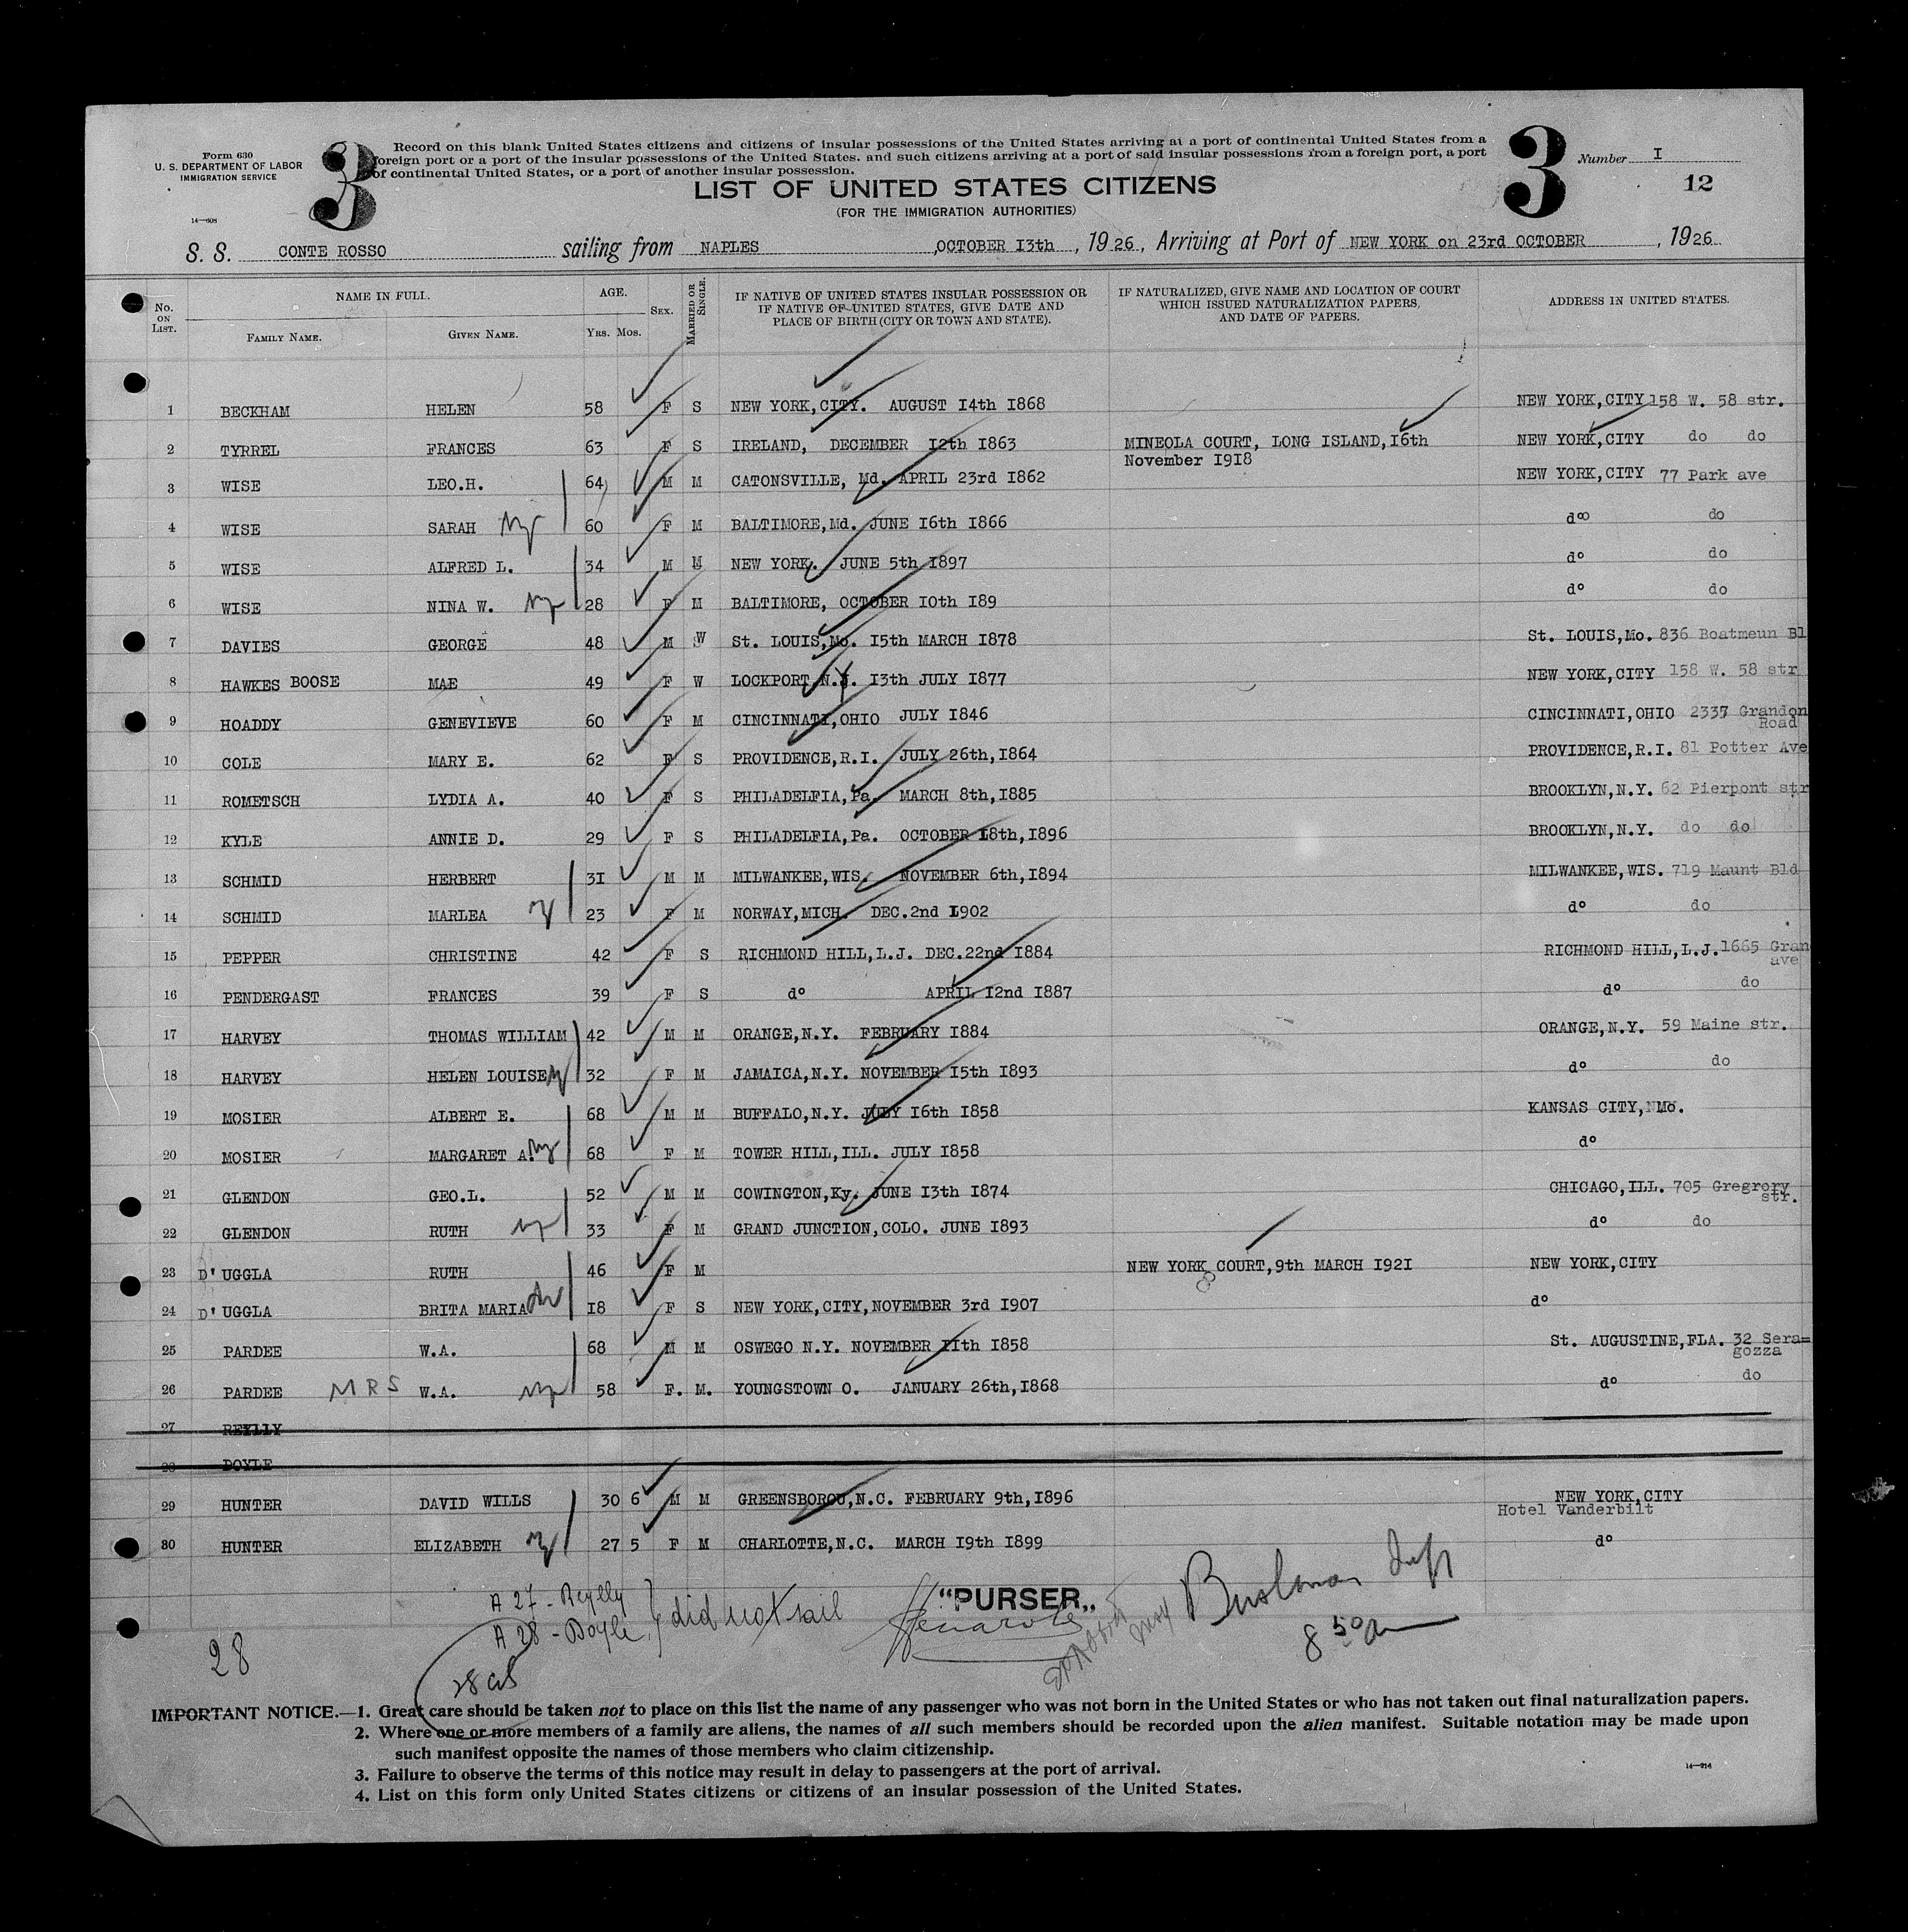 Form 630
U. S. DEPARTMENT OF LABOR
IMMIGRATION SERVICE
14—608
3
Record on this blank United States citizens and citizens of insular possessions of the United States arriving at a port of continental United States from a
foreign port or a port of the insular possessions of the United States. and such citizens arriving at a port of said insular possessions from a foreign port, a port
of continental United States, or a port of another insular possession.
3
Number I
12
LIST OF UNITED STATES CITIZENS
(FOR THE IMMIGRATION AUTHORITIES)
S. S. CONTE ROSSO sailing from NAPLES ,OCTOBER I3th , 1926, Arriving at Port of NEW YORK on 23rd OCTOBER , 1926
No. ON LIST. NAME IN FULL. FAMILY NAME. GIVEN NAME. AGE. YRS. MOS. SEX. MARRIED OR SINGLE. IF NATIVE OF UNITED STATES INSULAR POSSESSION OR IF NATIVE OF UNITED STATES, GIVE DATE AND PLACE OF BIRTH (CITY OR TOWN AND STATE). IF NATURALIZED, GIVE NAME AND LOCATION OF COURT WHICH ISSUED NATURALIZATION PAPERS, AND DATE OF PAPERS. ADDRESS IN UNITED STATES.
1 BECKHAM HELEN 58 F S NEW YORK,CITY. AUGUST I4th I868 NEW YORK,CITY 158 W. 58 str.
2 TYRREL FRANCES 63 F S IRELAND, DECEMBER I2th I863 MINEOLA COURT, LONG ISLAND,I6th November I9I8 NEW YORK,CITY do do
3 WISE LEO.H. 64 M M CATONSVILLE, Md. APRIL 23rd I862 NEW YORK,CITY 77 Park ave
4 WISE SARAH 60 F M BALTIMORE,Md. JUNE I6th I866 do do
5 WISE ALFRED L. 34 M M NEW YORK. JUNE 5th I897 do do
6 WISE NINA W. 28 F M BALTIMORE, OCTOBER IOth I89 do do
7 DAVIES GEORGE 48 M W St. LOUIS,Mo. I5th MARCH I878 St. LOUIS,Mo. 836 Boatmeun Bl
8 HAWKES BOOSE MAE 49 F W LOCKPORT N.Y. I3th JULY I877 NEW YORK,CITY 158 W. 58 str
9 HOADDY GENEVIEVE 60 F M CINCINNATI,OHIO JULY I846 CINCINNATI,OHIO 2337 Grandon Road
10 COLE MARY E. 62 F S PROVIDENCE,R.I. JULY 26th,I864 PROVIDENCE,R.I. 81 Potter Ave
11 ROMETSCH LYDIA A. 40 F S PHILADELFIA,Pa. MARCH 8th,I885 BROOKLYN,N.Y. 62 Pierpont str
12 KYLE ANNIE D. 29 F S PHILADELFIA,Pa. OCTOBER I8th,I896 BROOKLYN,N.Y. do do
13 SCHMID HERBERT 3I M M MILWANKEE,WIS. NOVEMBER 6th,I894 MILWANKEE,WIS. 719 Maunt Bld
14 SCHMID MARLEA 23 F M NORWAY,MICH. DEC.2nd I902 do do
15 PEPPER CHRISTINE 42 F S RICHMOND HILL,L.J. DEC.22nd I884 RICHMOND HILL,L.J.1665 Gran ave
16 PENDERGAST FRANCES 39 F S do APRIL I2nd I887 do do
17 HARVEY THOMAS WILLIAM 42 M M ORANGE,N.Y. FEBRUARY I884 ORANGE,N.Y. 59 Maine str.
18 HARVEY HELEN LOUISE 32 F M JAMAICA,N.Y. NOVEMBER I5th I893 do do
19 MOSIER ALBERT E. 68 M M BUFFALO,N.Y. JULY I6th I858 KANSAS CITY, Mo.
20 MOSIER MARGARET A. 68 F M TOWER HILL,ILL. JULY I858 do
21 GLENDON GEO.L. 52 M M COWINGTON,Ky. JUNE I3th I874 CHICAGO,ILL. 705 Gregrory str.
22 GLENDON RUTH 33 F M GRAND JUNCTION,COLO. JUNE I893 do do
23 D' UGGLA RUTH 46 F M NEW YORK COURT,9th MARCH I92I NEW YORK,CITY
24 D' UGGLA BRITA MARIA I8 F S NEW YORK,CITY,NOVEMBER 3rd I907 do
25 PARDEE W.A. 68 M M OSWEGO N.Y. NOVEMBER IIth I858 St. AUGUSTINE,FLA. 32 Sera= gozza
26 PARDEE MRS W.A. 58 F. M. YOUNGSTOWN O. JANUARY 26th,I868 do do
27 REYLLY
28 DOYLE
29 HUNTER DAVID WILLS 30 6 M M GREENSBOROU,N.C. FEBRUARY 9th,I896 NEW YORK,CITY Hotel Vanderbilt
30 HUNTER ELIZABETH 27 5 F M CHARLOTTE,N.C. MARCH I9th I899 do
A 27 - Reylly
A 28 - Doyle } did not sail
"PURSER„
8 50 a
28
28
IMPORTANT NOTICE.—1. Great care should be taken not to place on this list the name of any passenger who was not born in the United States or who has not taken out final naturalization papers.
2. Where one or more members of a family are aliens, the names of all such members should be recorded upon the alien manifest. Suitable notation may be made upon
such manifest opposite the names of those members who claim citizenship.
3. Failure to observe the terms of this notice may result in delay to passengers at the port of arrival.
4. List on this form only United States citizens or citizens of an insular possession of the United States.
14—914